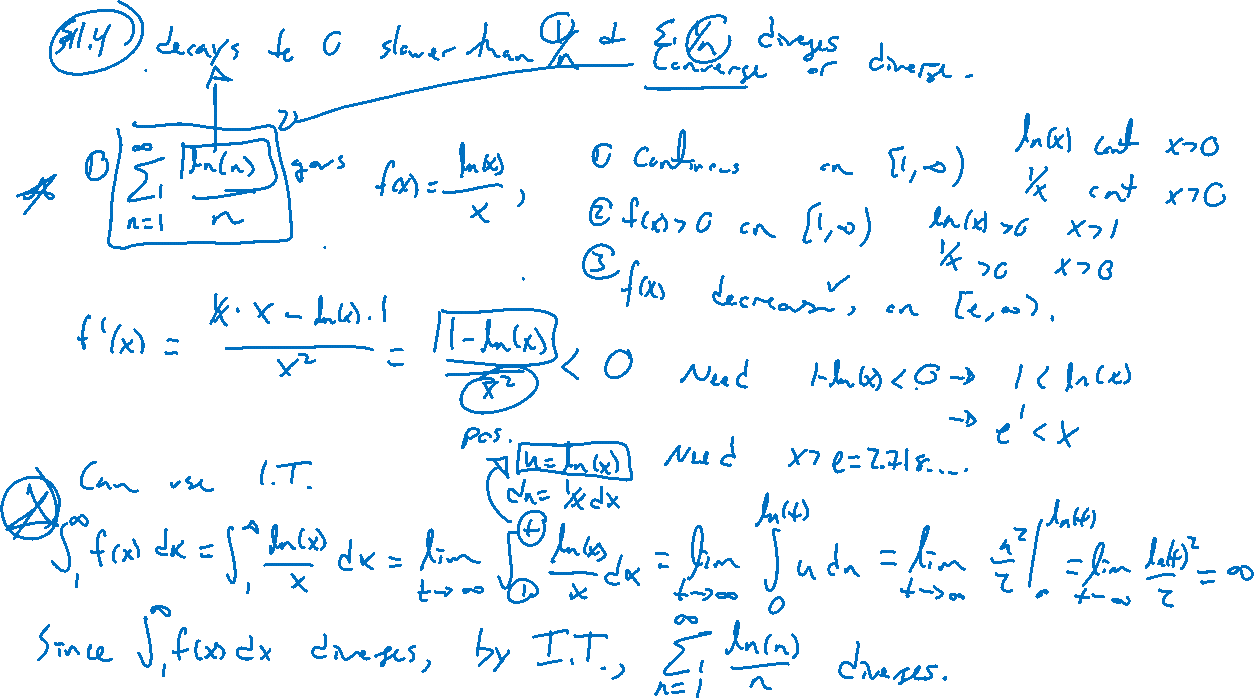 §11.4 decays to 0 slower than 1/n & Σ 1/n diverges
Converge or diverge.
① ∞ Σ n=1 ln(n)/n grows f(x) = ln(x)/x, ① Continuous on [1,∞) ln(x) cont x>0
1/x cont x>0
② f(x)>0 on [1,∞) ln(x)>0 x>1
1/x >0 x>0
③ f(x) decreasing ✓ on [e,∞).
f'(x) = (1/x · x − ln(x)·1)/x² = (1−ln(x))/x² < 0 Need 1−ln(x)<0 → 1 < ln(x)
→ e¹ < x
pos.
Need x> e=2.718....
Can use I.T.
u = ln(x)
du = 1/x dx
∫₁^∞ f(x) dx = ∫₁^∞ ln(x)/x dx = lim t→∞ ∫₁^t ln(x)/x dx = lim t→∞ ∫₀^ln(t) u du = lim t→∞ u²/2 |₀^ln(t) = lim t→∞ ln(t)²/2 = ∞
Since ∫₁^∞ f(x) dx diverges, by I.T., ∞ Σ n=1 ln(n)/n diverges.